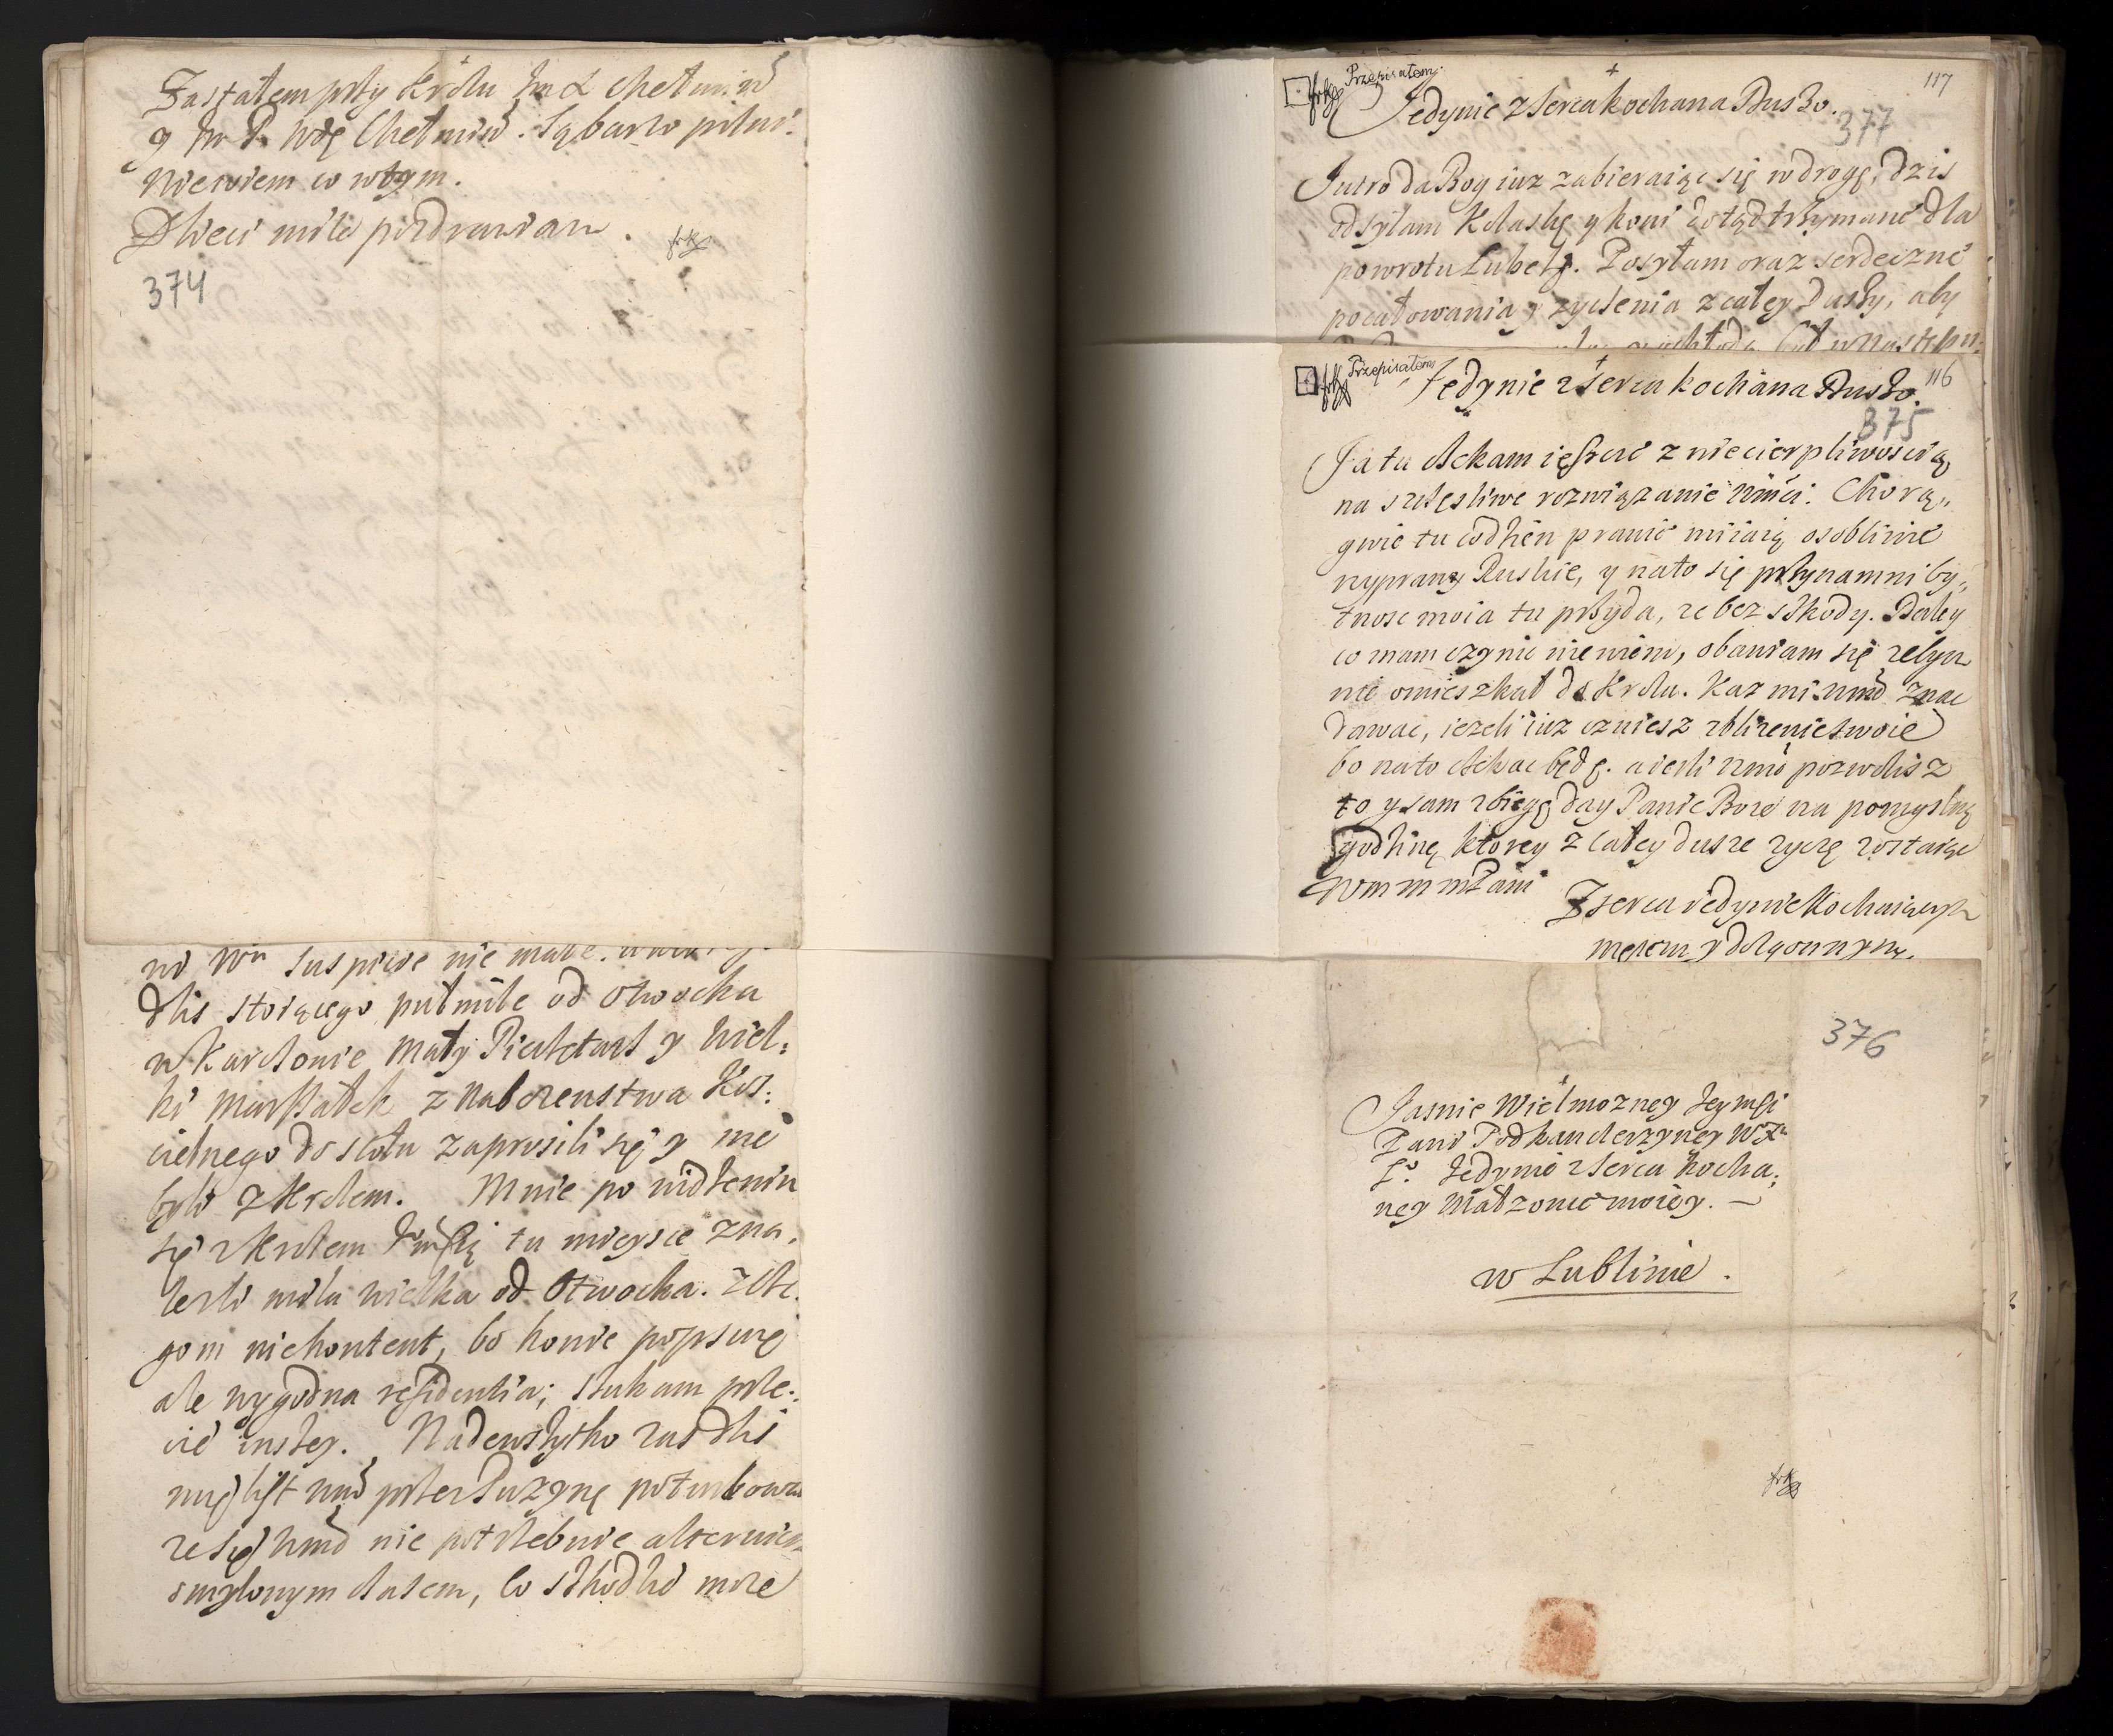 Zastałem przy Krolu Im X Chełmin
y Im P. Wdę Chełmin. Są barzo pilni.
Niewiem co wtym.
Dzieci mile pozdrawiam.
374
suspicie nie małe.
dzis stoiącego pułmile od Otwocka
w Karczonie Mały Pieczętarz y Wiel:
ki Marszałek z Nabozenstwa Kos:
cielnego do stołu zaprosili się y nie
byli z Krolem. Mnie po widzeniu
się z Krolem tu mieysce zna,
lezli mila wielka od Otwocka. z cze,
gom niekontent, bo konie popsuię
ale wygodna residentia; szukam prze:
cie inszey. Nadewszytko zas dzis
mię list przez Puzynę poturbował
ze się nie potrzebnie alteruiesz
omylonym czasem, co szkodzic moze
Przepisałem. 117
Jedynie z Serca kochana Duszo.
377
Jutro da Bog iuz zabieraiąc się w drogę, dzis
odsyłam Kolaskę y koni dotąd trzymane dla
powrotu Lubelg. Posyłam oraz serdeczne
pocałowania y zyczenia z całey Duszy, aby
Przepisałem 116
Jedynie z Serca kochana Duszo.
375
Ja tu czekam ieszcze z niecierpliwoscią
na szczęsliwe rozwiązanie Wmsci. Chorą,,
gwie tu codzien prawie miiaią osobliwie
wyprawy Ruskie, y nato się przynamni by,,
tnosc moia tu przyda, ze bez szkody. Daley
co mam czynic niewiem, obawiam się zebym
nie omieszkał do Krola. Kaz mi Wmć znac
dawac, iezeli iuz czuiesz zblizenie twoie
bo nato czekac będę. a iesli Wmć pozwolisz
to y sam zbiegę day Panie Boze na pomyslną
godzinę ktorey z całey dusze zyczę zostaiąc
Wm m mPani
Z serca iedynie Kochaiącym
męzem y dozgonnym.
376
Jasnie Wielmozney Jeymsci
Pani Podkanclerzyney WX
Lo. Jedynie z Serca Kocha,
ney Małzonce moiey. —
w Lublinie.